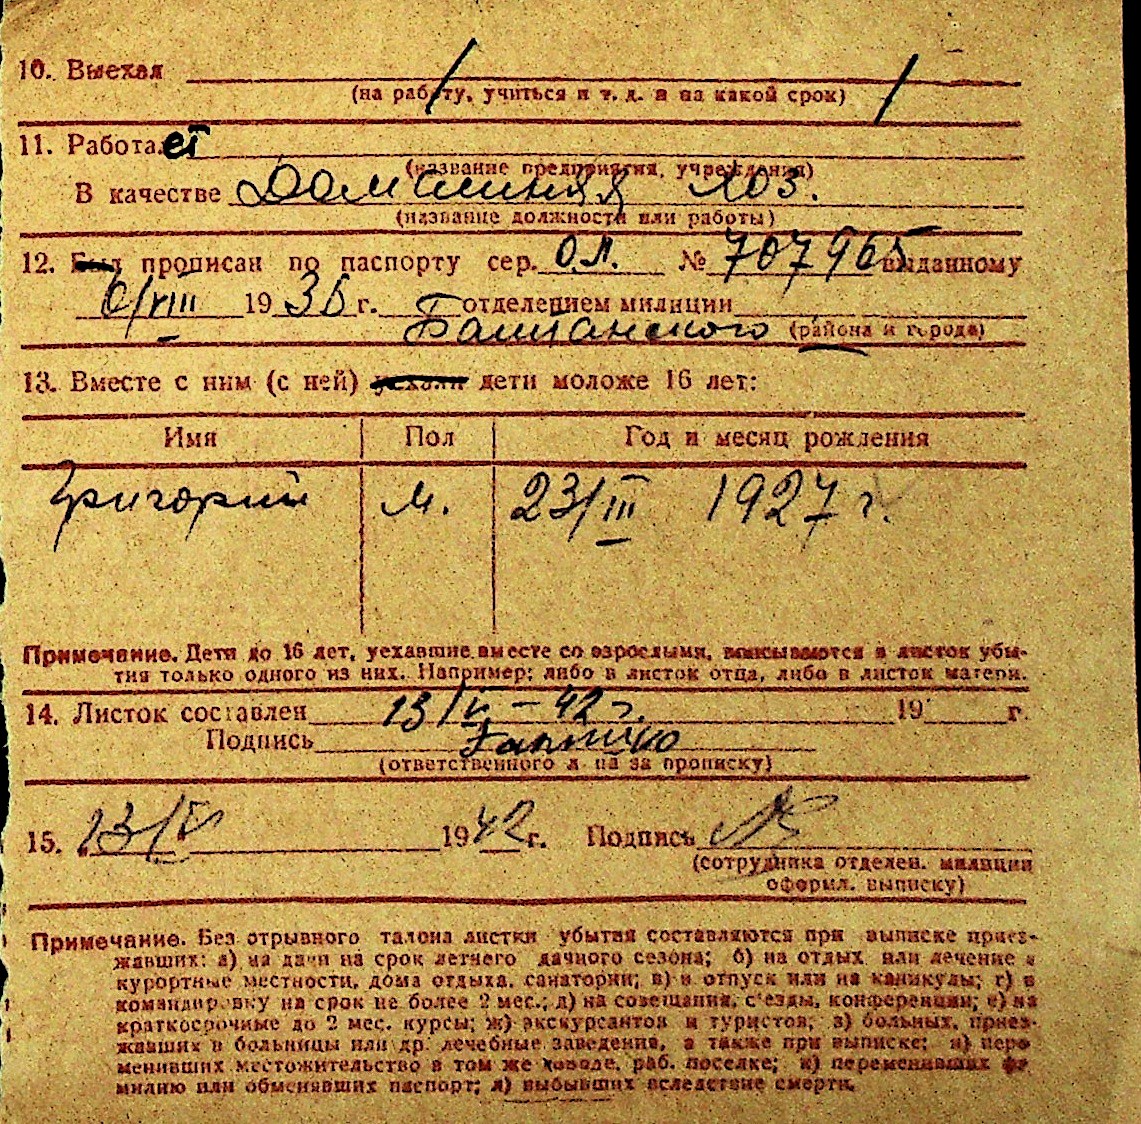 10. Выехал
(на работу, учиться и т. д. и на какой срок)
11. Работает
(название предприятия, учреждения)
В качестве Домашняя хоз.
(название должности или работы)
12. Был прописан по паспорту сер. О.Л. № 707965 выданному
6/VIII 1936 г. отделением милиции
Баштанского (района и города)
13. Вместе с ним (с ней) уехали дети моложе 16 лет:
Имя Пол Год и месяц рождения
Григорий м. 23/III 1927 г.
Примечание. Дети до 16 лет, уехавшие вместе со взрослыми, вписываются в листок убы-
тия только одного из них. Например: либо в листок отца, либо в листок матери.
14. Листок составлен 13/V – 42 г. 19 г.
Подпись
(ответственного л ца за прописку)
15. 13/V 1942 г. Подпись
(сотрудника отделен. милиции
оформл. выписку)
Примечание. Без отрывного талона листки убытия составляются при выписке приез-
жавших: а) на дачи на срок летнего дачного сезона; б) на отдых или лечение в
курортные местности, дома отдыха, санатории; в) в отпуск или на каникулы; г) в
командировку на срок не более 2 мес.; д) на совещания, с'езды, конференции; е) на
краткосрочные до 2 мес. курсы; ж) экскурсантов и туристов; з) больных, приез-
жавших в больницы или др. лечебные заведения, а также при выписке: и) пере
менивших местожительство в том же городе, раб. поселке; к) переменивших фа
милию или обменявших паспорт; л) выбывших вследствие смерти.